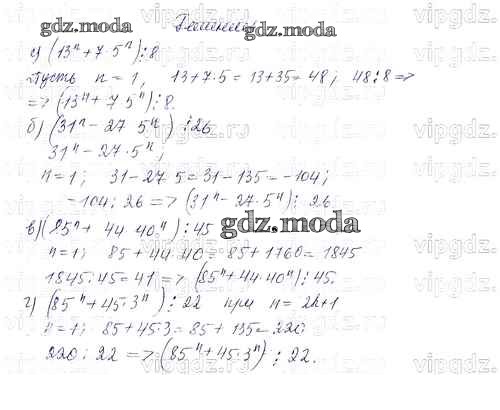 Решение
gdz.moda
gdz.moda
а) (13ⁿ + 7 · 5ⁿ) ⋮ 8
Пусть n = 1, 13 + 7 · 5 = 13 + 35 = 48; 48 ⋮ 8 =>
=> (13ⁿ + 7 · 5ⁿ) ⋮ 8.
б) (31ⁿ - 27 5ⁿ) ⋮ 26
31ⁿ - 27 · 5ⁿ;
n = 1; 31 - 27 5 = 31 - 135 = -104;
-104 ⋮ 26 => (31ⁿ - 27 · 5ⁿ) ⋮ 26
в) (85ⁿ + 44 · 40ⁿ) ⋮ 45
gdz.moda
n = 1; 85 + 44 · 40 = 85 + 1760 = 1845
1845 : 45 = 41 => (85ⁿ + 44 · 40ⁿ) ⋮ 45.
г) (85ⁿ + 45 · 3ⁿ) ⋮ 22 при n = 2k+1
n = 1; 85 + 45 · 3 = 85 + 135 = 220;
220 ⋮ 22 => (85ⁿ + 45 · 3ⁿ) ⋮ 22.
vipgdz.ru